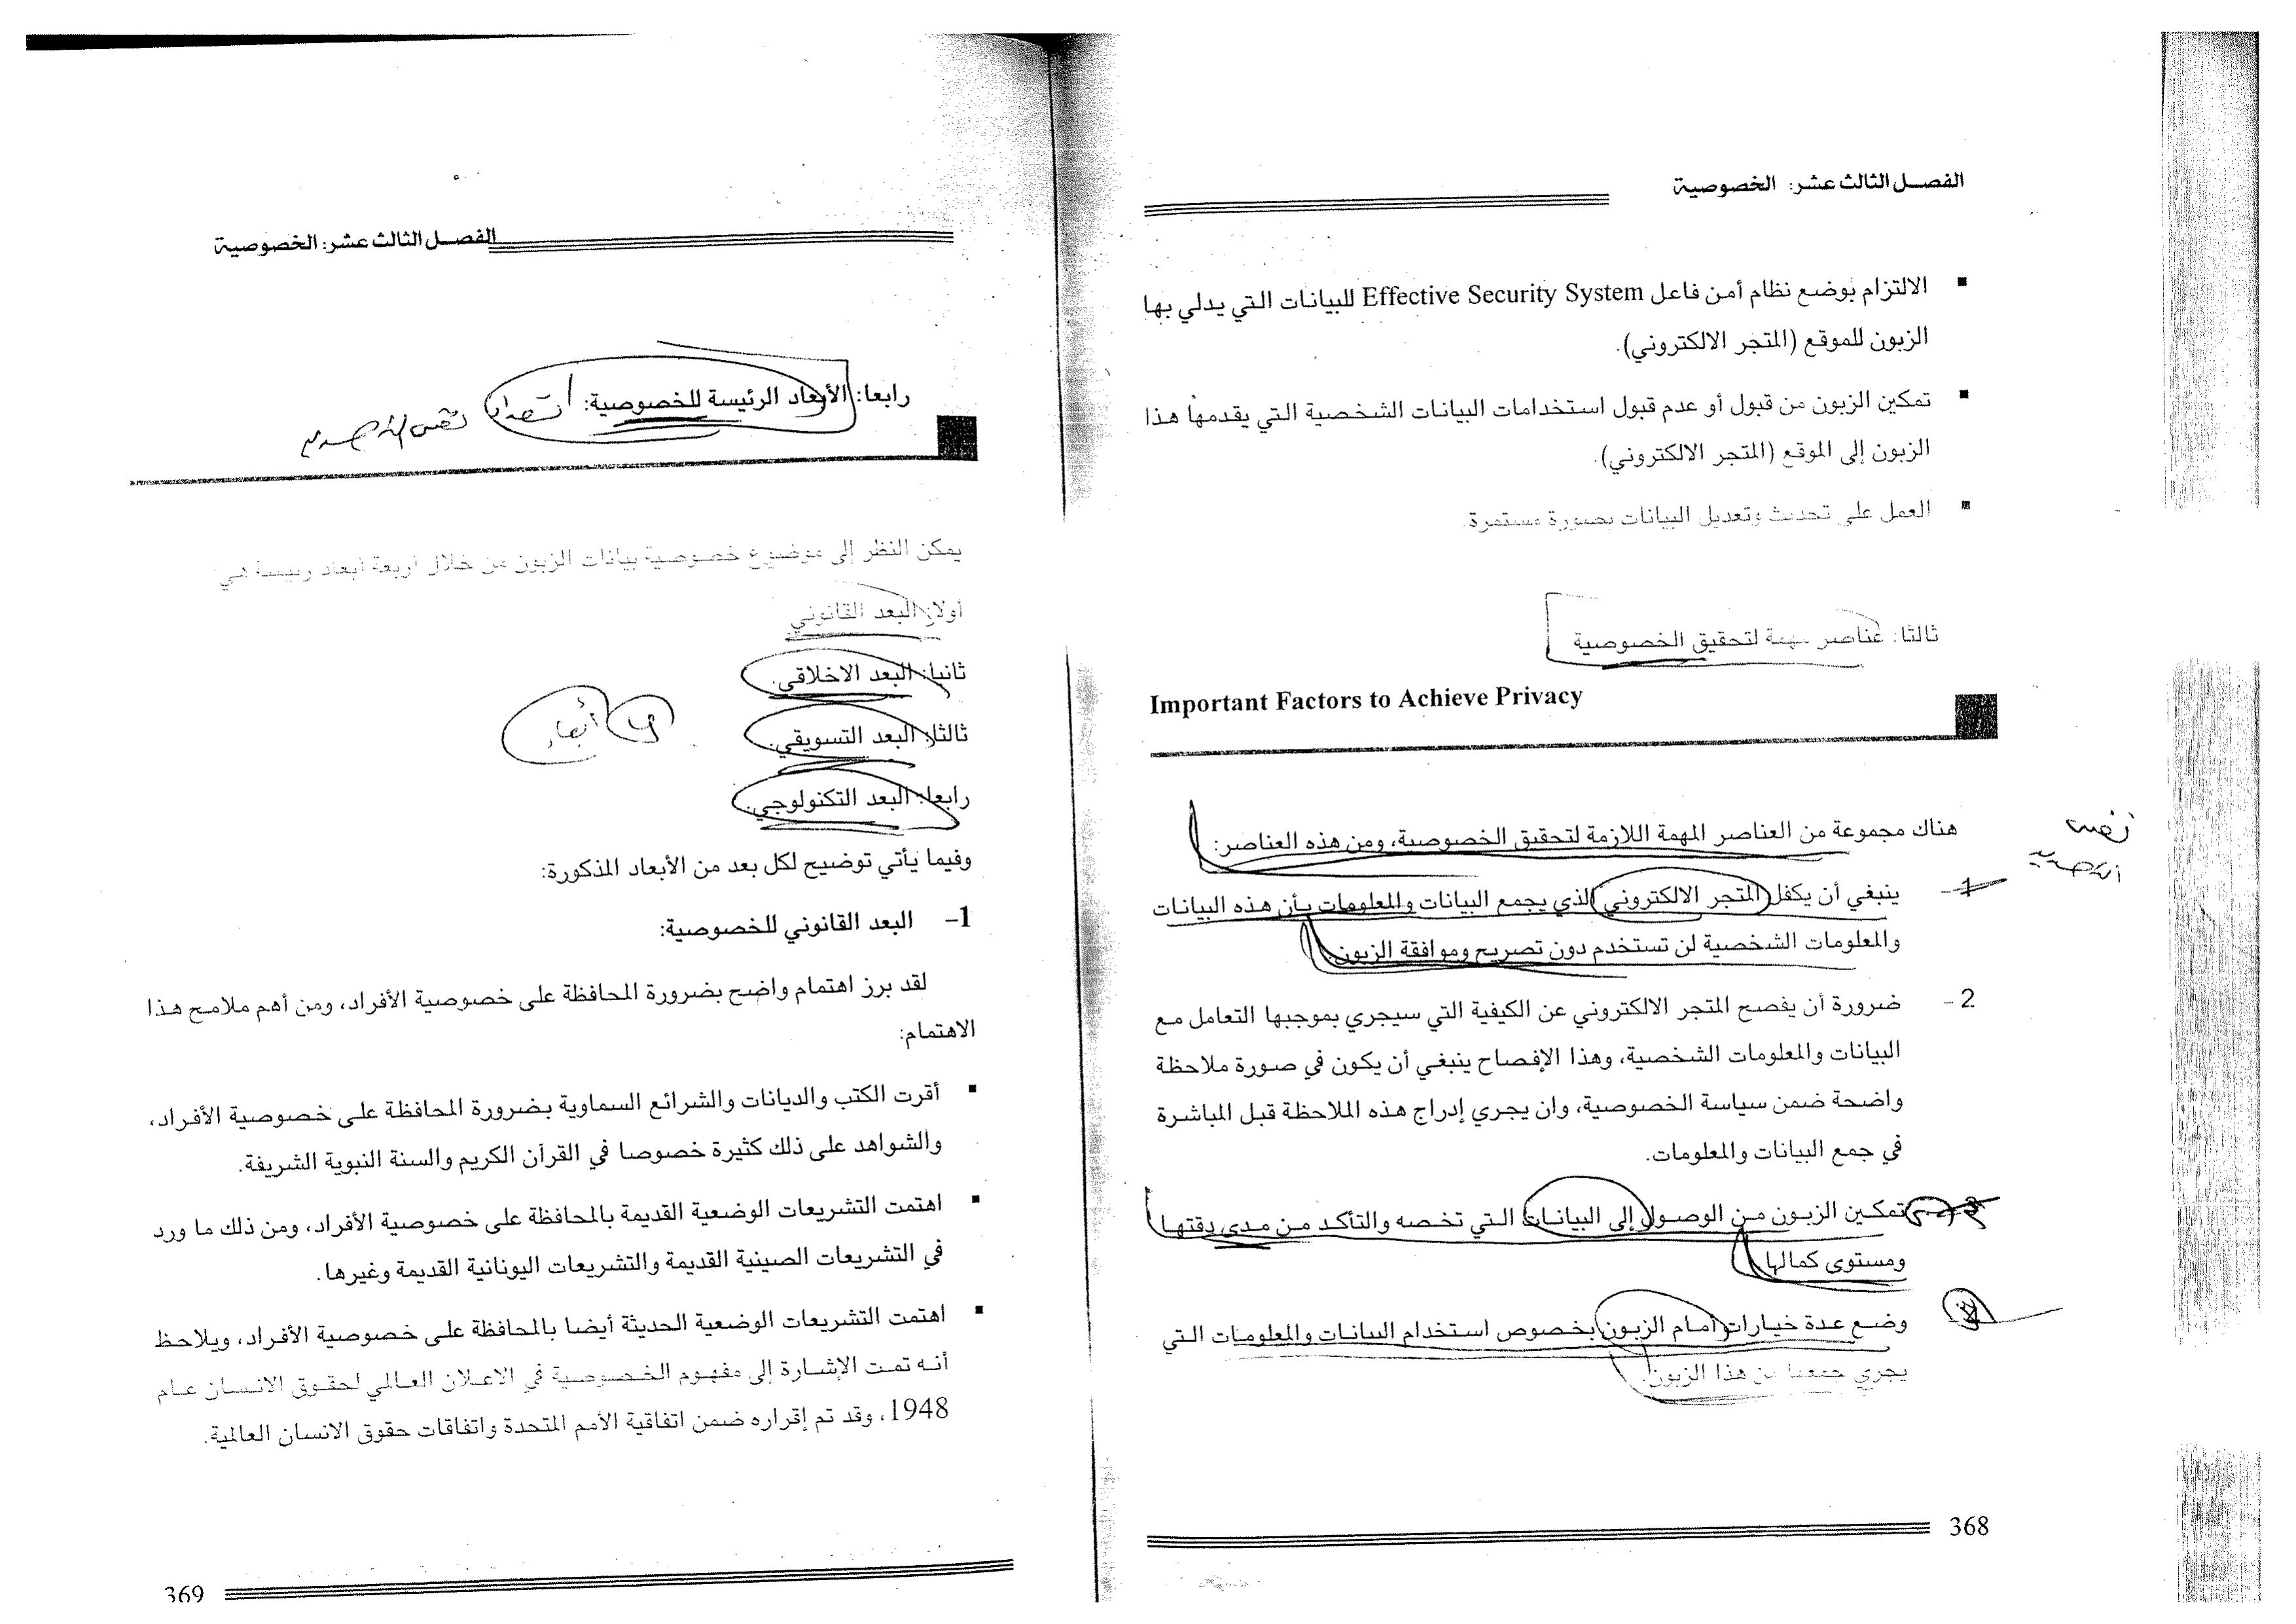 الفصل الثالث عشر: الخصوصية
▪ الالتزام بوضع نظام أمن فاعل Effective Security System للبيانات التي يدلي بها
الزبون للموقع (المتجر الالكتروني).
▪ تمكين الزبون من قبول أو عدم قبول استخدامات البيانات الشخصية التي يقدمها هذا
الزبون إلى الموقع (المتجر الالكتروني).
▪ العمل على تحديث وتعديل البيانات بصورة مستمرة
ثالثا: عناصر مهمة لتحقيق الخصوصية
Important Factors to Achieve Privacy
هناك مجموعة من العناصر المهمة اللازمة لتحقيق الخصوصية، ومن هذه العناصر:
1- ينبغي أن يكفل المتجر الالكتروني الذي يجمع البيانات والمعلومات بأن هذه البيانات
والمعلومات الشخصية لن تستخدم دون تصريح وموافقة الزبون.
2- ضرورة أن يفصح المتجر الالكتروني عن الكيفية التي سيجري بموجبها التعامل مع
البيانات والمعلومات الشخصية، وهذا الإفصاح ينبغي أن يكون في صورة ملاحظة
واضحة ضمن سياسة الخصوصية، وان يجري إدراج هذه الملاحظة قبل المباشرة
في جمع البيانات والمعلومات.
3- تمكين الزبون من الوصول إلى البيانات التي تخصه والتأكد من مدى دقتها
ومستوى كمالها
وضع عدة خيارات أمام الزبون بخصوص استخدام البيانات والمعلومات التي
يجري جمعها من هذا الزبون.
368
الفصل الثالث عشر: الخصوصية
رابعا: الأبعاد الرئيسة للخصوصية:
يمكن النظر إلى موضوع خصوصية بيانات الزبون من خلال أربعة أبعاد رئيسة هي
أولا: البعد القانوني
ثانيا: البعد الاخلاقي.
ثالثا: البعد التسويقي.
رابعا: البعد التكنولوجي.
أبعاد
وفيما يأتي توضيح لكل بعد من الأبعاد المذكورة:
1- البعد القانوني للخصوصية:
لقد برز اهتمام واضح بضرورة المحافظة على خصوصية الأفراد، ومن أهم ملامح هذا
الاهتمام:
▪ أقرت الكتب والديانات والشرائع السماوية بضرورة المحافظة على خصوصية الأفراد،
والشواهد على ذلك كثيرة خصوصا في القرآن الكريم والسنة النبوية الشريفة.
▪ اهتمت التشريعات الوضعية القديمة بالمحافظة على خصوصية الأفراد، ومن ذلك ما ورد
في التشريعات الصينية القديمة والتشريعات اليونانية القديمة وغيرها.
▪ اهتمت التشريعات الوضعية الحديثة أيضا بالمحافظة على خصوصية الأفراد، ويلاحظ
أنه تمت الإشارة إلى مفهوم الخصوصية في الاعلان العالمي لحقوق الانسان عام
1948، وقد تم إقراره ضمن اتفاقية الأمم المتحدة واتفاقات حقوق الانسان العالمية.
369